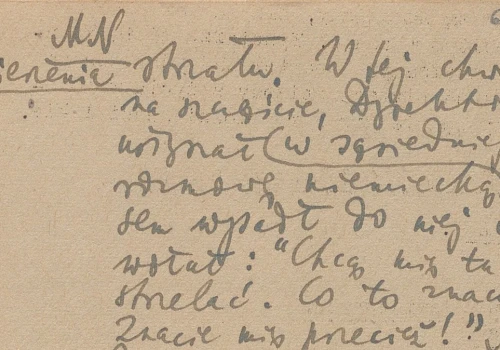 MN
ierzenia strzału. W tej chw
na szczęście, Dyrekto
usłyszał (w sąsiedniej
rozmowę niemiecką
sem wypadł do niej
wołał: "Chcą mię tu
strzelać. Co to znac
Znacie mię przecież!"